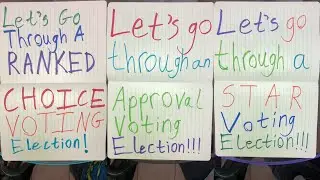 Let's Go
Through A
RANKED
CHOICE
VOTING
Election!
Let's go
through an
Approval
Voting
Election!!!
Let's go
through a
STAR
Voting
Election!!!